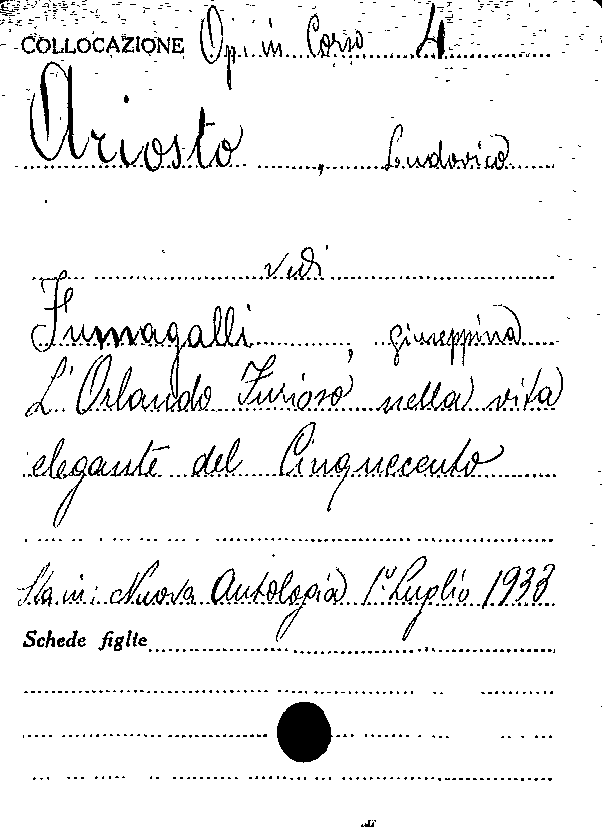 COLLOCAZIONE Op. in Corso 4
Ariosto, Ludovico
vedi
Fumagalli, Giuseppina
L'Orlando Furioso nella vita
elegante del Cinquecento
Sta in: Nuova Antologia 1º Luglio 1933
Schede figlie